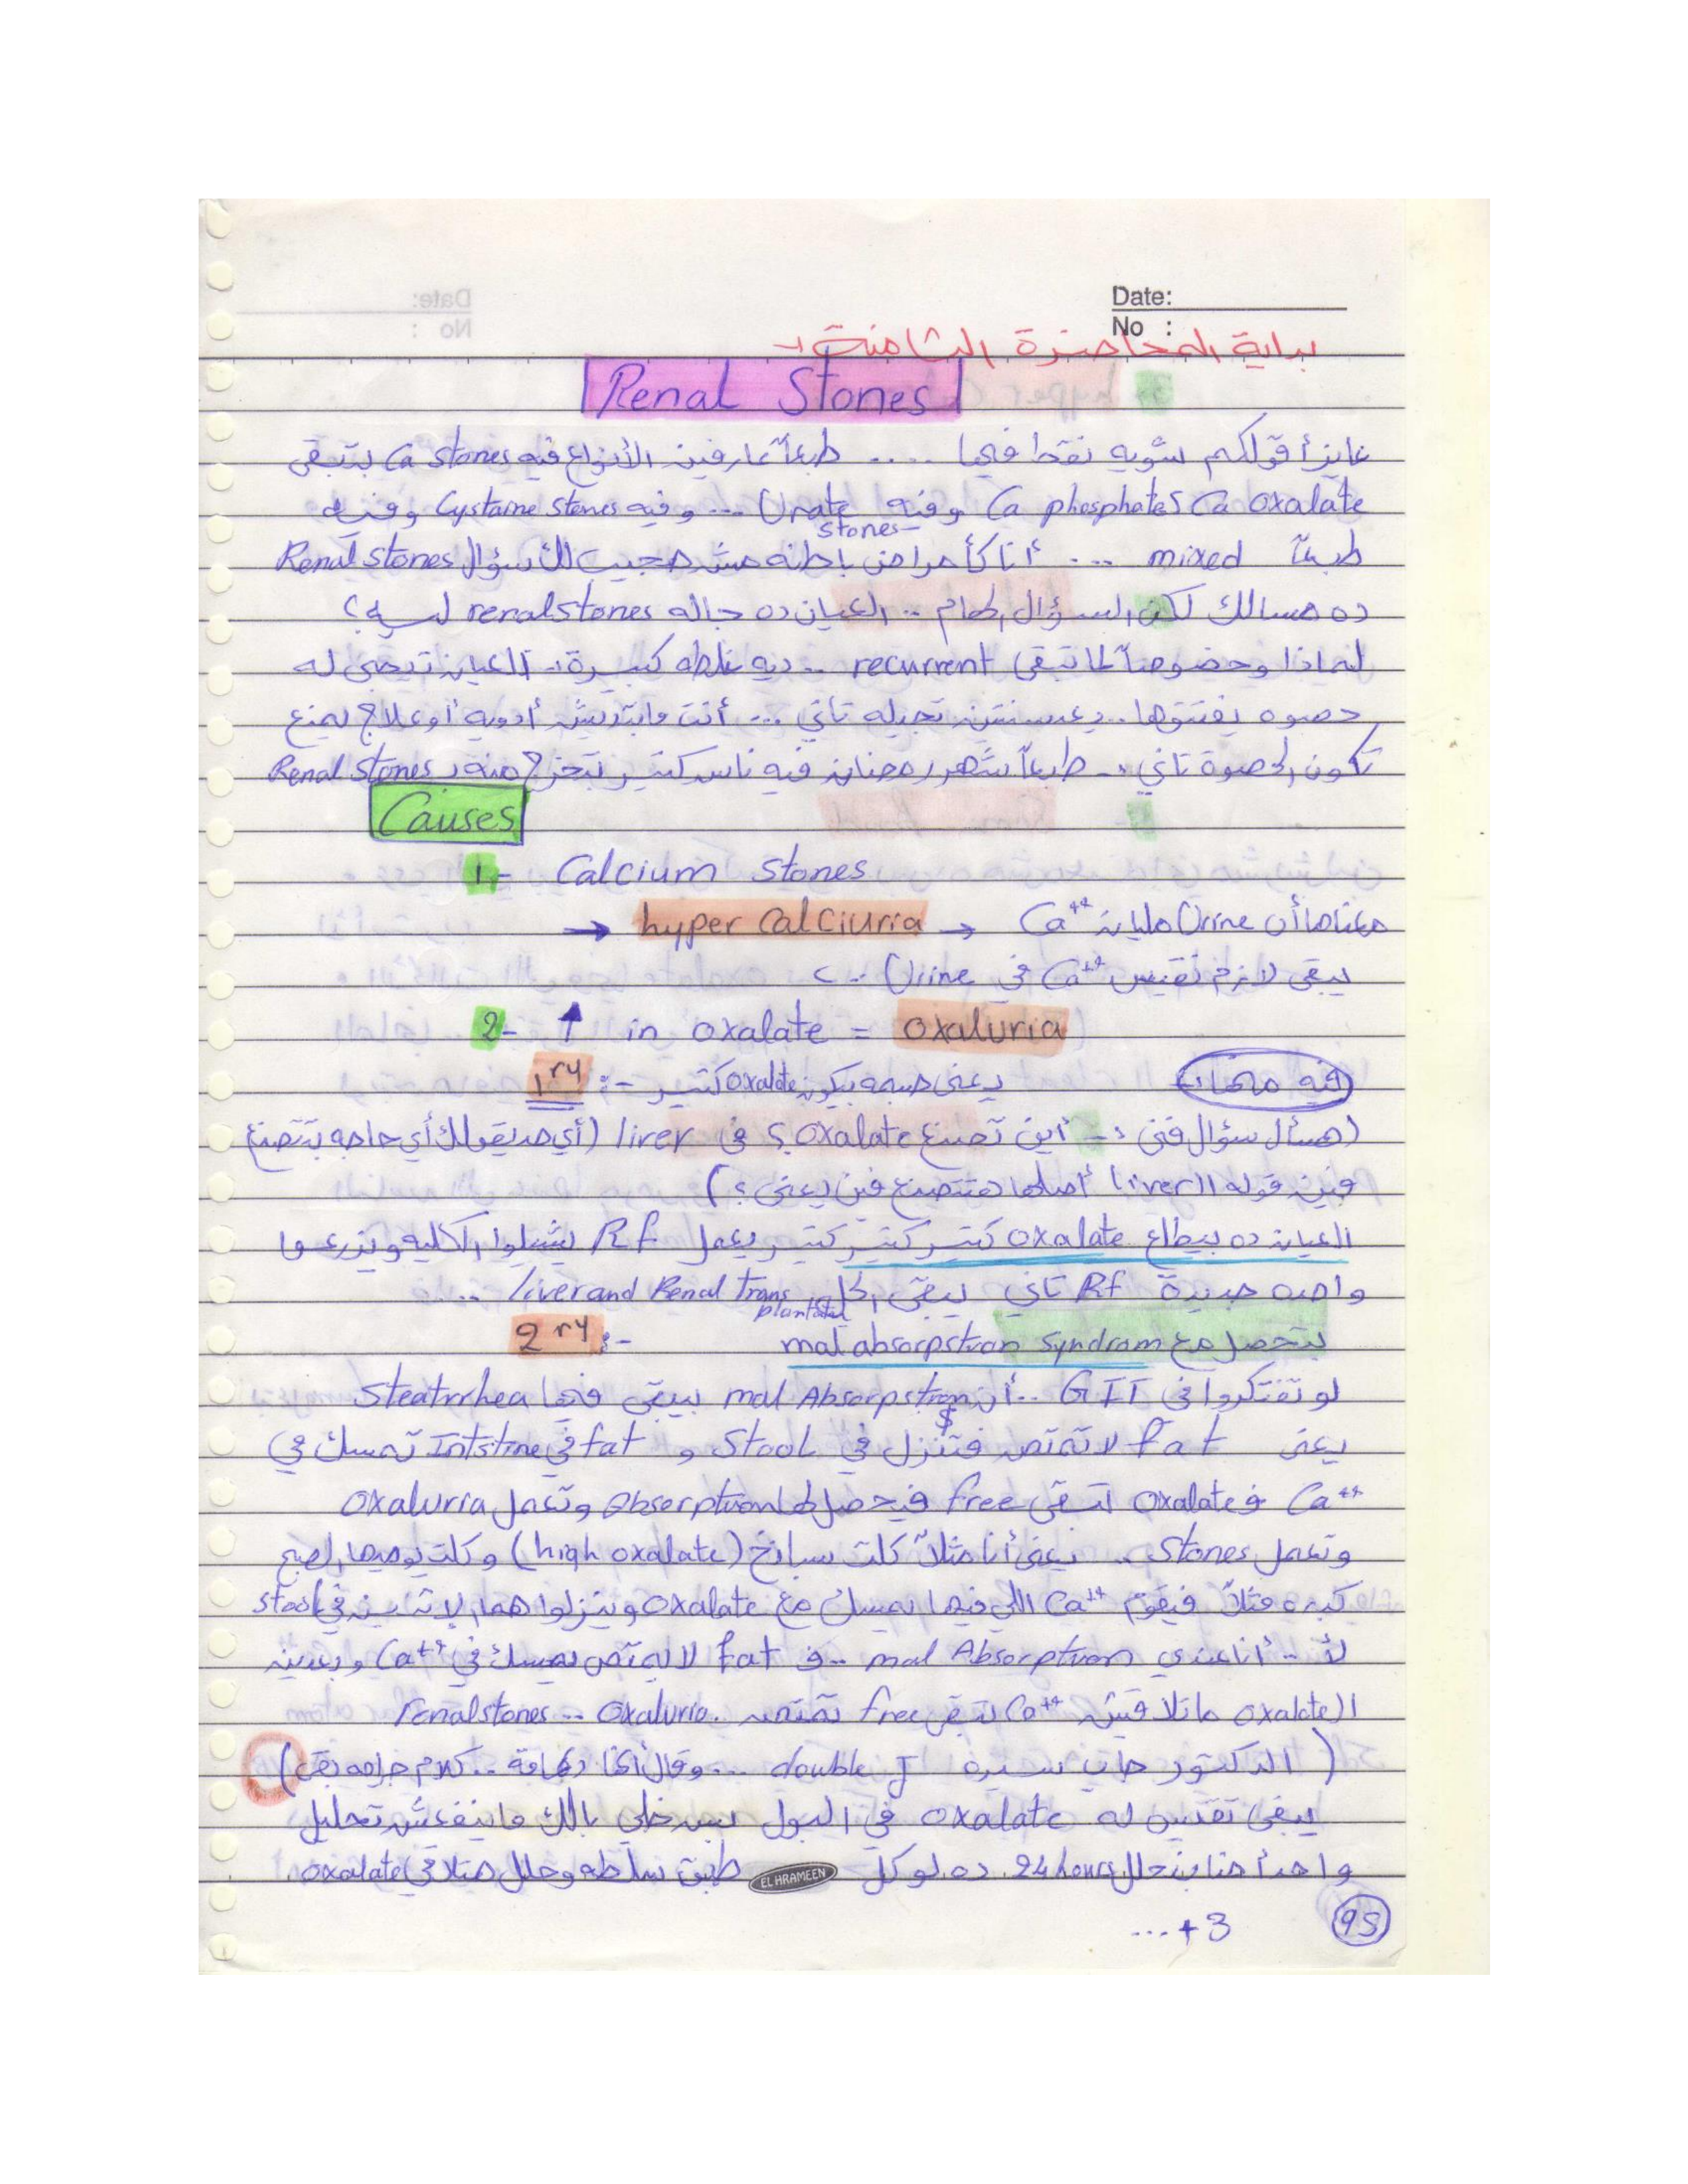 Date:
No :
بداية المحاضرة الثامنة :-
Renal Stones
عايز أقولكم شويه نقط فيها .... طبعاً عارفين الأنواع فيه Ca stones بتبقى
Ca oxalate و Ca phosphate وفيه Urate stones ... وفيه Cystaine stones وفيه
طبعاً mixed ... أنا كأمراض باطنه مش هجيب لك سؤال Renal stones
ده مسالك لكن السؤال الهام .. العيان ده جاله renal stones ليه ؟
لماذا وخصوصاً لما تبقى recurrent .. ديه غلطه كبيرة .. العيان تيجى له
حصوه يفتتوها .. بعد سنتين تجيله تاني ... أنت مابتديش أدويه أو علاج يمنع
تكون الحصوة تاني .. طبعاً شهر رمضان فيه ناس كتير بتخرج منه بـ Renal stones
Causes
1- Calcium stones
→ hyper calciuria → معناها أن Urine مليانه Ca++
يبقى لازم تقيس Ca++ في Urine ..
2- ↑ in oxalate = oxaluria
فيه منها :-
1ry :- يعنى جسمه بيكون oxalate كتير
(هسأل سؤال فنى :- أين تصنع oxalate ؟ فى liver (أي حد يقولك أي حاجه بتتصنع
فين قوله الـ liver أصلها هتتصنع فين يعنى ؟ )
العيان ده بيطلع oxalate كتير كتير كتير يعمل Rf يشيلوا الكليه ويزرعوا
واحده جديدة Rf تاني يبقى الحل liver and Renal Transplantation ....
2ry :- بتحصل مع mal absorpstion syndrom
لو تفتكروا فى GIT .. أن mal Absorpstion $ بيبقى فيها Steatrrhea
يعنى fat لا تمتص فتنزل في Stool و fat في Intstine تمسك في
Ca++ فـ oxalate تبقى free فيحصل لها absorption وتعمل oxaluria
وتعمل stones .. يعنى أنا مثلاً كلت سبانخ (high oxalate) وكلت يوميها الصبح
جبنه مثلاً فيقوم Ca++ اللي فيها يمسك مع oxalate وينزلوا هما الاتنين في stool
لأ .. أنا عندي mal Absorption .. فـ fat لا يمتص يمسك في Ca++ وبعدين
الـ oxalate ماتلاقيش Ca++ تبقى free تمتص .. oxaluria .. renal stones
( الدكتور جاب سيرة double J ... وقال أنها دعامة .. كلام جراحه بقى )
يبقى تقيس له oxalate في البول بس خلي بالك ماينفعش تحليل
واحد أحنا بنحلل 24 hours ده لو كل طبق سلطه وحلل هتلاقي oxalate
EL HRAMEEN
+3 ...
95